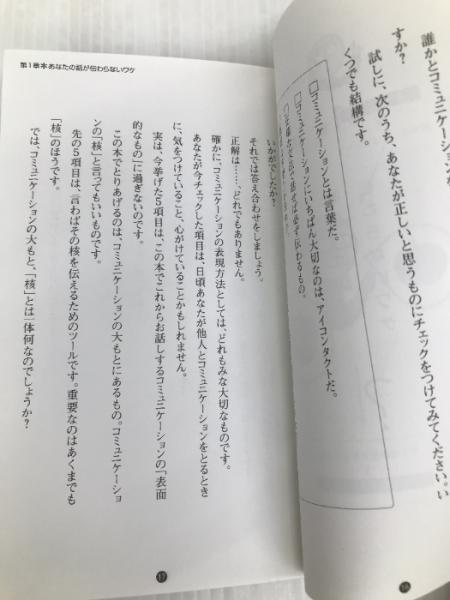 誰かとコミュニケーション
すか?
試しに、次のうち、あなたが正しいと思うものにチェックをつけてみてください。い
くつでも結構です。
□コミュニケーションとは言葉だ。
□コミュニケーションにいちばん大切なのは、アイコンタクトだ。
ば必ず伝わるもの。
16
第1章本あなたの話が伝わらないワケ
いかがでしたか?
それでは答え合わせをしましょう。
正解は……、「どれでもありません」。
確かに、コミュニケーションの表現方法としては、どれもみな大切なものです。
あなたが今チェックした項目は、日頃あなたが他人とコミュニケーションをとるとき
に、気をつけていること、心がけていることかもしれません。
実は、今挙げた5項目は、この本でこれからお話しするコミュニケーションの「表面
的なもの」に過ぎないのです。
この本でとりあげるのは、コミュニケーションの大もとにあるもの。コミュニケーショ
ンの「核」と言ってもいいものです。
先の5項目は、言わばその核を伝えるためのツールです。重要なのはあくまでも
「核」のほうです。
では、コミュニケーションの大もと、「核」とは一体何なのでしょうか?
17